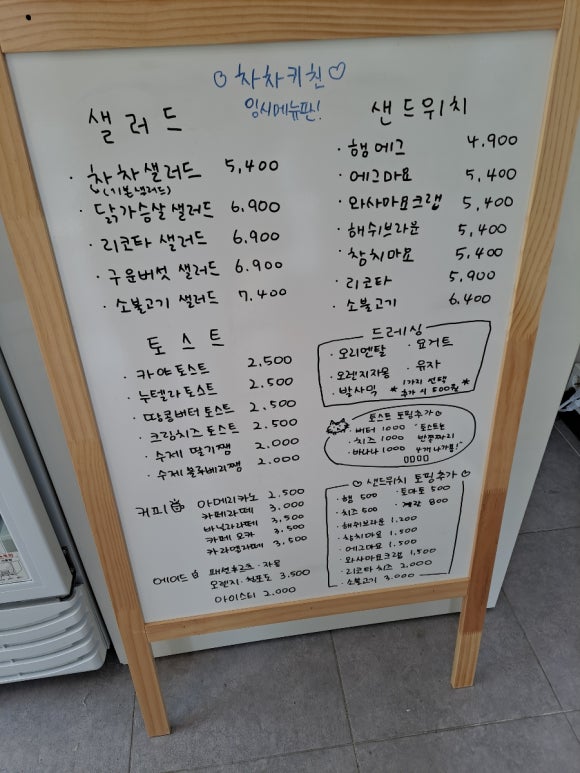 차차키친
임시메뉴판!
샐러드
· 참차샐러드 5,400
(기본샐러드)
· 닭가슴살 샐러드 6,900
· 리코타 샐러드 6,900
· 구운버섯 샐러드 6,900
· 소불고기 샐러드 7,400
토스트
· 카야토스트 2,500
· 누텔라토스트 2,500
· 땅콩버터 토스트 2,500
· 크림치즈 토스트 2,500
· 수제 딸기쨈 2,000
· 수제 블루베리쨈 2,000
커피 아메리카노 2,500
카페라떼 3,000
바닐라라떼 3,500
카페모카 3,500
카라멜라떼 3,500
에이드 패션후르츠·자몽
오렌지·청포도 3,500
아이스티 2,000
샌드위치
· 햄에그 4,900
· 에그마요 5,400
· 와사마요크랩 5,400
· 해쉬브라운 5,400
· 참치마요 5,400
· 리코타 5,900
· 소불고기 6,400
드레싱
· 오리엔탈 · 요거트
· 오렌지자몽 · 유자
· 발사믹 * 1가지 선택 *
추가 시 500원
토스트 토핑추가
· 버터 1000 "토스트는
· 치즈 1000 반쪽짜리
· 바나나 1000 4개 나가용!"
샌드위치 토핑추가
· 햄 500 · 토마토 500
· 치즈 500 · 계란 800
· 해쉬브라운 1,200
· 참치마요 1,500
· 에그마요 1,500
· 와사마요크랩 1,500
· 리코타치즈 2,000
· 소불고기 3,000